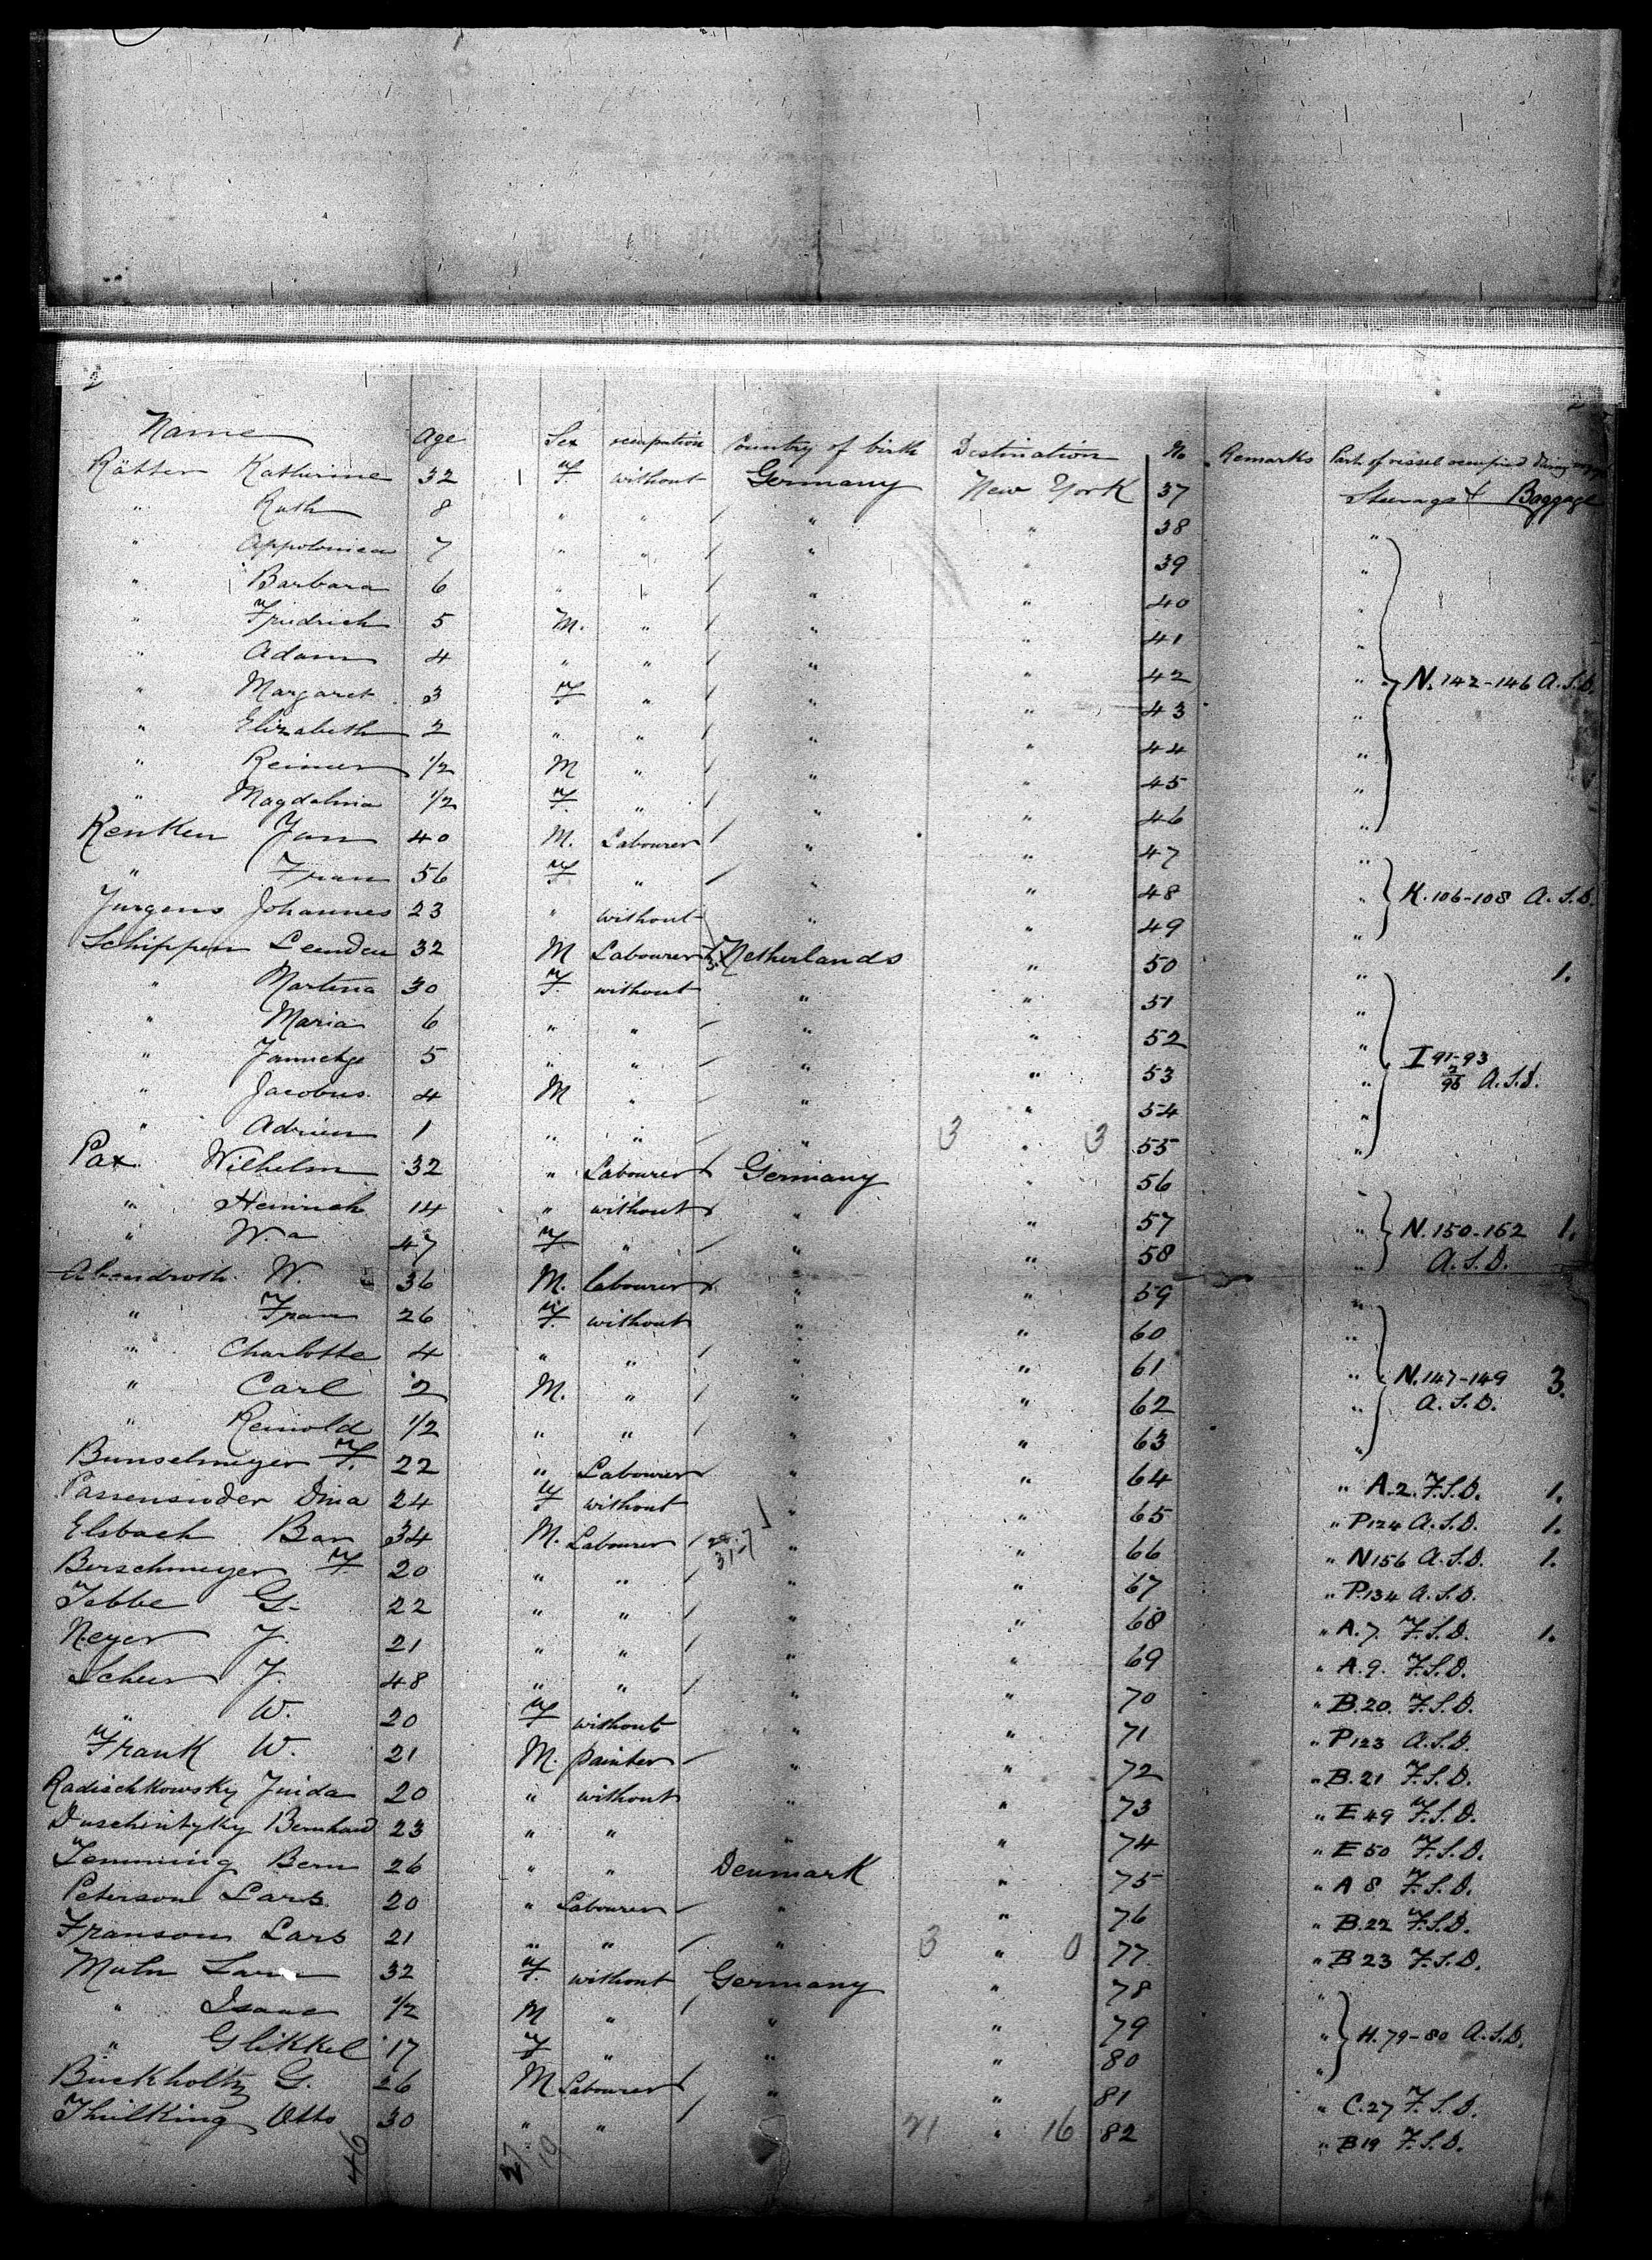 2
Name Age Sex occupation Country of birth Destination No Remarks Part of vessel occupied during
Rätter Katherine 32 F. without Germany New York 37 Steerage Baggage
" Ruth 8 " " " " 38 "
" Appolonica 7 " " " " 39 "
" Barbara 6 " " " " 40 "
" Fridrich 5 M. " " " 41 "
" Adam 4 " " " " 42 " N. 142-146 A.S.D.
" Margaret 3 F " " " 43 "
" Elizabeth 2 " " " " 44 "
" Reimer 1/2 M " " " 45 "
" Magdalina 1/2 F. " " " 46 "
Renken Jan 40 M. Labourer " " 47 "
" Frau 56 F " " " 48 " K. 106-108 A.S.D.
Jurgens Johannes 23 " without " " 49 "
Schippen Leendeu 32 M Labourer Netherlands " 50 " 1.
" Martina 30 F. without " " 51 "
" Maria 6 " " " " 52 "
" Jannetge 5 " " " " 53 " I 91-93 95 A.S.D.
" Jacobus 4 M " " " 54 "
" Adrien 1 " " " 3 " 3 55
Pax Wilhelm 32 " Labourer Germany " 56 "
" Heinrich 14 " without " " 57 " N. 150-152 1.
" W. a 47 F " " " 58 " A.S.D.
Abendroth W. 36 M. labourer " " 59 "
" Frau 26 F. without " " 60 "
" Charlotte 4 " " " " 61 " N. 147-149 3.
" Carl 2 M. " " " 62 " A.S.D.
" Reinold 1/2 " " " " 63 "
Bunselmeyer F. 22 " Labourer " " 64 " A.2. F.S.D. 1.
Passensuder Dina 24 F without " " 65 " P124 A.S.D. 1.
Elsbach Bar 34 M. Labourer " " 66 " N156 A.S.D. 1.
Berschmeyer F 20 " " " " 67 " P.134 A.S.D.
Tebbe G. 22 " " " " 68 " A.7. F.S.D. 1.
Neyer J. 21 " " " " 69 " A.9. F.S.D.
Scheer J. 48 " " " " 70 " B.20. F.S.D.
" W. 20 F without " " 71 " P123 A.S.D.
Frank W. 21 M. painter " " 72 " B.21 F.S.D.
Radischkowsky Juida 20 " without " " 73 " E 49 F.S.D.
Duschintyky Bernhard 23 " " " " 74 " E 50 F.S.D.
Temming Bern 26 " " Denmark " 75 " A 8 F.S.D.
Peterson Lars 20 " Labourer " " 76 " B.22 F.S.D.
Franson Lars 21 " " " 3 " 0 77 " B 23 F.S.D.
Muln 32 F. without Germany " 78 "
" Isaac 1/2 M " " " 79 " H. 79-80 A.S.D.
" Glikkel 17 F " " " 80 "
Buckholtz G. 26 M Labourer " " 81 " C.27 F.S.D.
Thilking Otto 30 " " " 21 " 16 82 " B19 F.S.D.
46 27 19